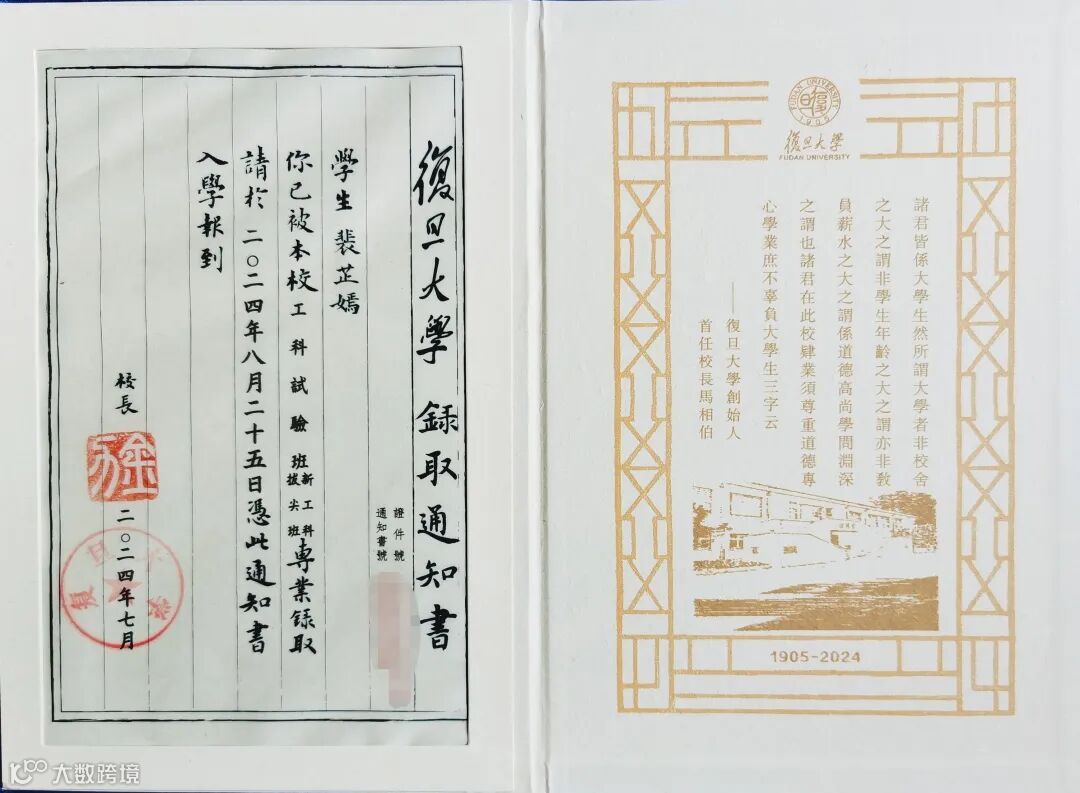 復旦大學 錄取通知書
證件號
通知書號
學生 裴芷嫣
你已被本校工科試驗班新工科拔尖班專業錄取
請於二〇二四年八月二十五日憑此通知書
入學報到
校長
金力
二〇二四年七月
復旦大學
FUDAN UNIVERSITY
1905
復旦大學
FUDAN UNIVERSITY
諸君皆係大學生然所謂大學者非校舍
之大之謂非學生年齡之大之謂亦非教
員薪水之大之謂係道德高尚學問淵深
之謂也諸君在此校肄業須尊重道德專
心學業庶不辜負大學生三字云
——復旦大學創始人
首任校長馬相伯
1905-2024
大数跨境